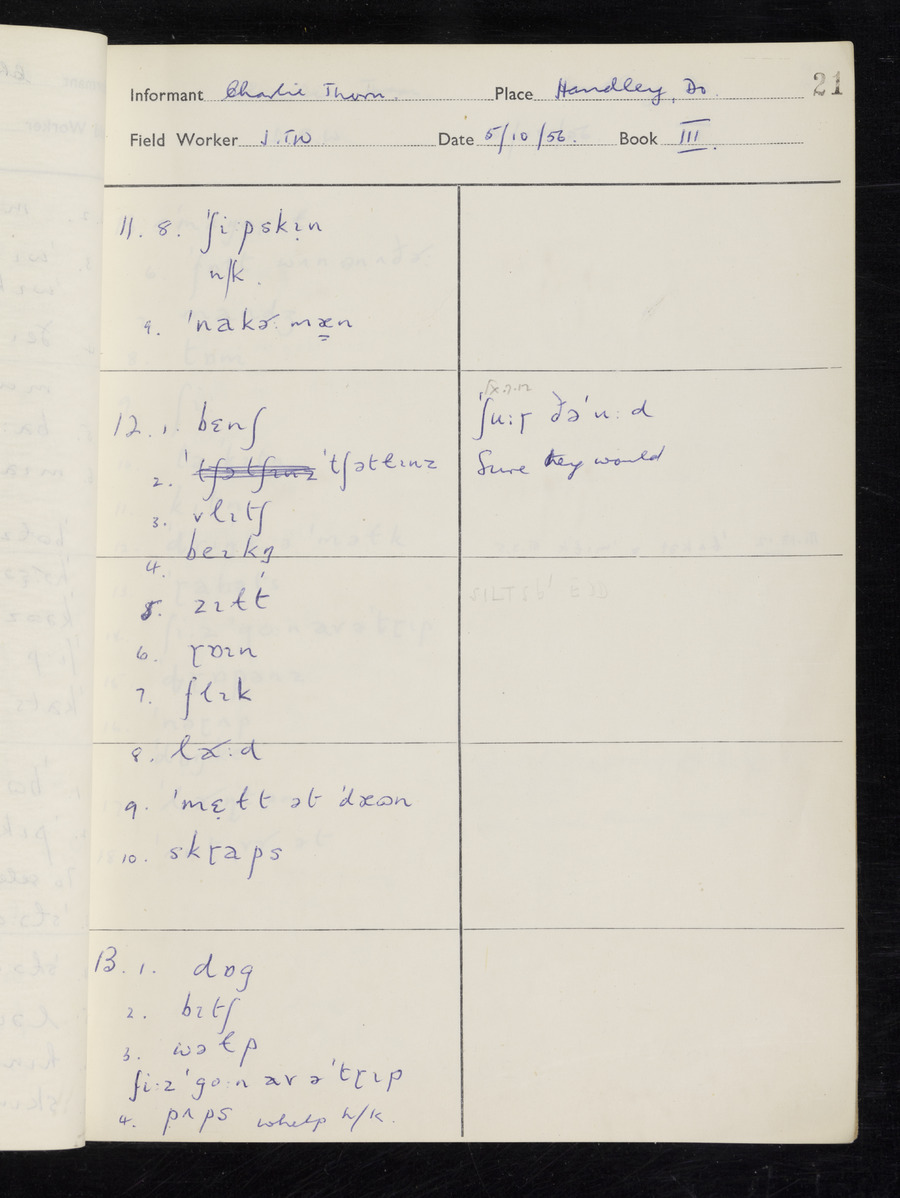 Informant Charlie Thorn. Place Handley, Do. 21
Field Worker J.TW Date 5/10/56. Book III.
11. 8. ˈʃi·pskɪ̣n
n/k.
9. ˈnakɚ: mæ̳n
12. 1. bɛnʃ
2. ˈtʃətɫɪnz
3. vlɪtʃ
4. beɪkn̩
5. zɪɫt
6. ɽɒɪn
7. flɪk
8. lɚ:d
9. ˈmɛ̣ɫt ət ˈdæʊn
10. skɽaps
ʃu:ɽ ðəˈu:d
Sure they would
13. 1. dɒg
2. bɪtʃ
3. wəɫp
ʃi:z ˈgo:n æv ə ˈtɽɪp
4. pʌps whelp n/k.